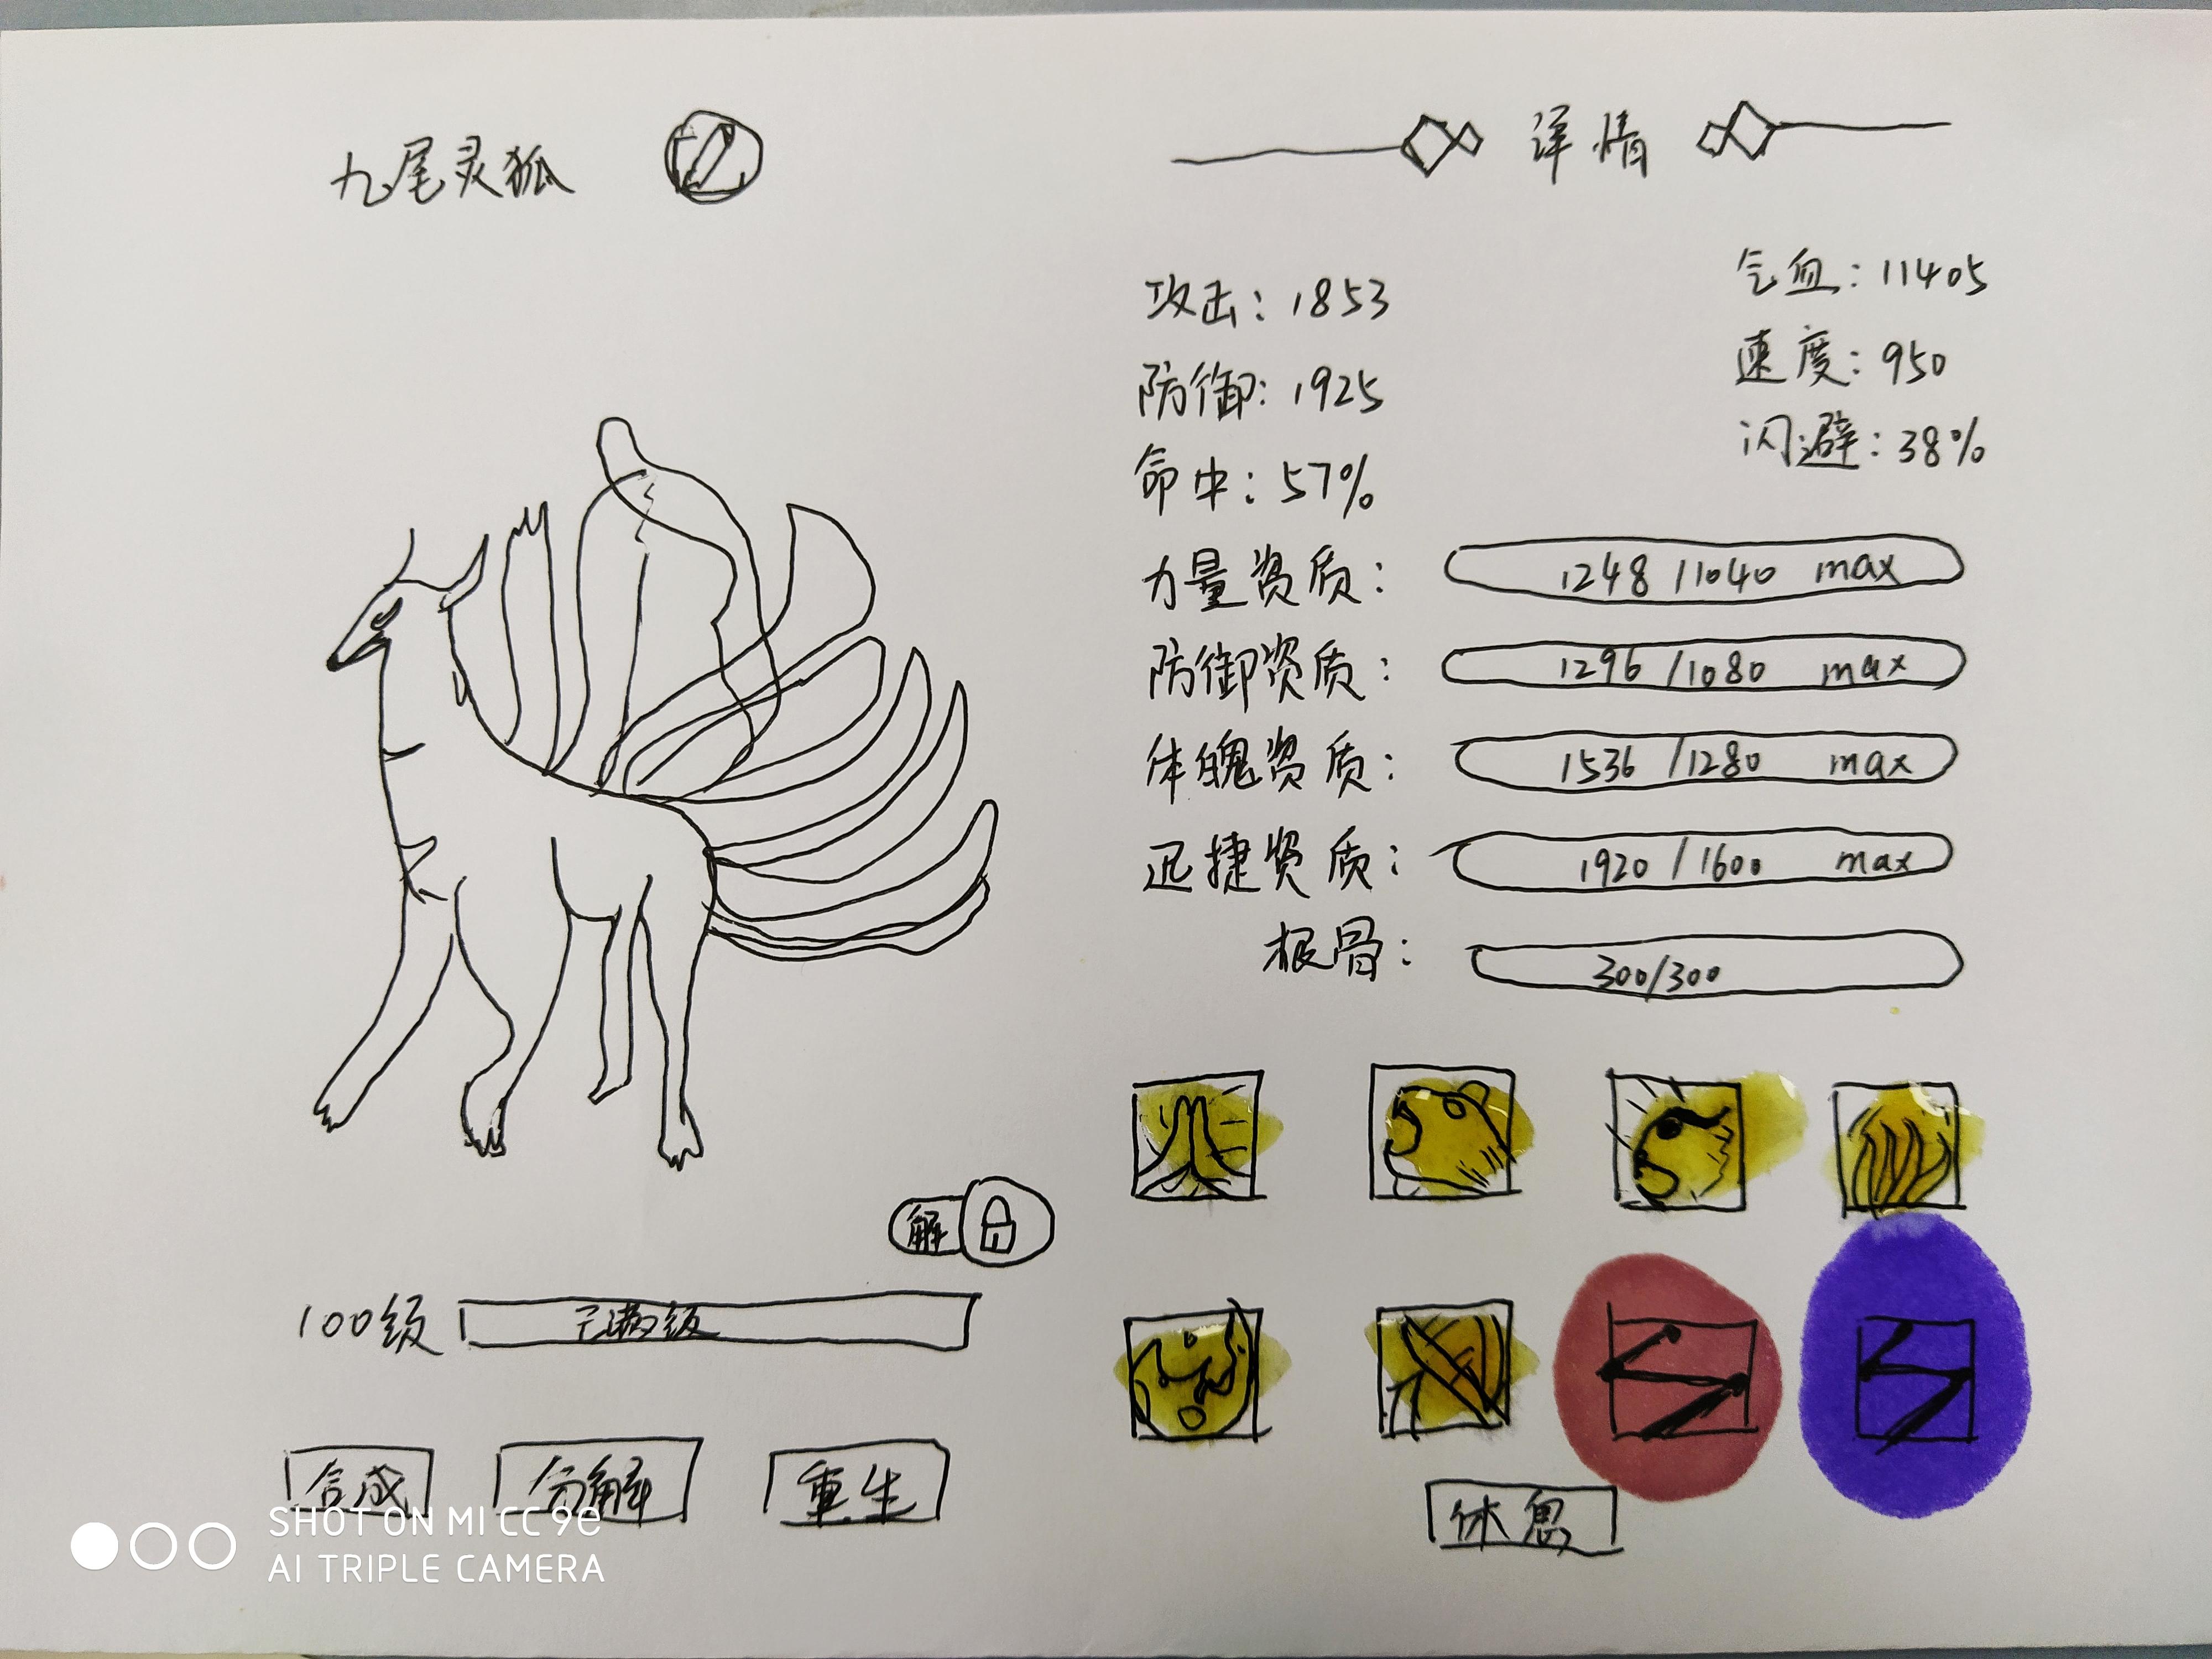 九尾灵狐
详情
攻击：1853
气血：11405
防御：1925
速度：950
命中：57%
闪避：38%
力量资质：1248 / 1040 max
防御资质：1296 / 1080 max
体魄资质：1536 / 1280 max
迅捷资质：1920 / 1600 max
根骨：300/300
解
100级 已满级
合成 分解 重生
休息
SHOT ON MI CC 9e
AI TRIPLE CAMERA